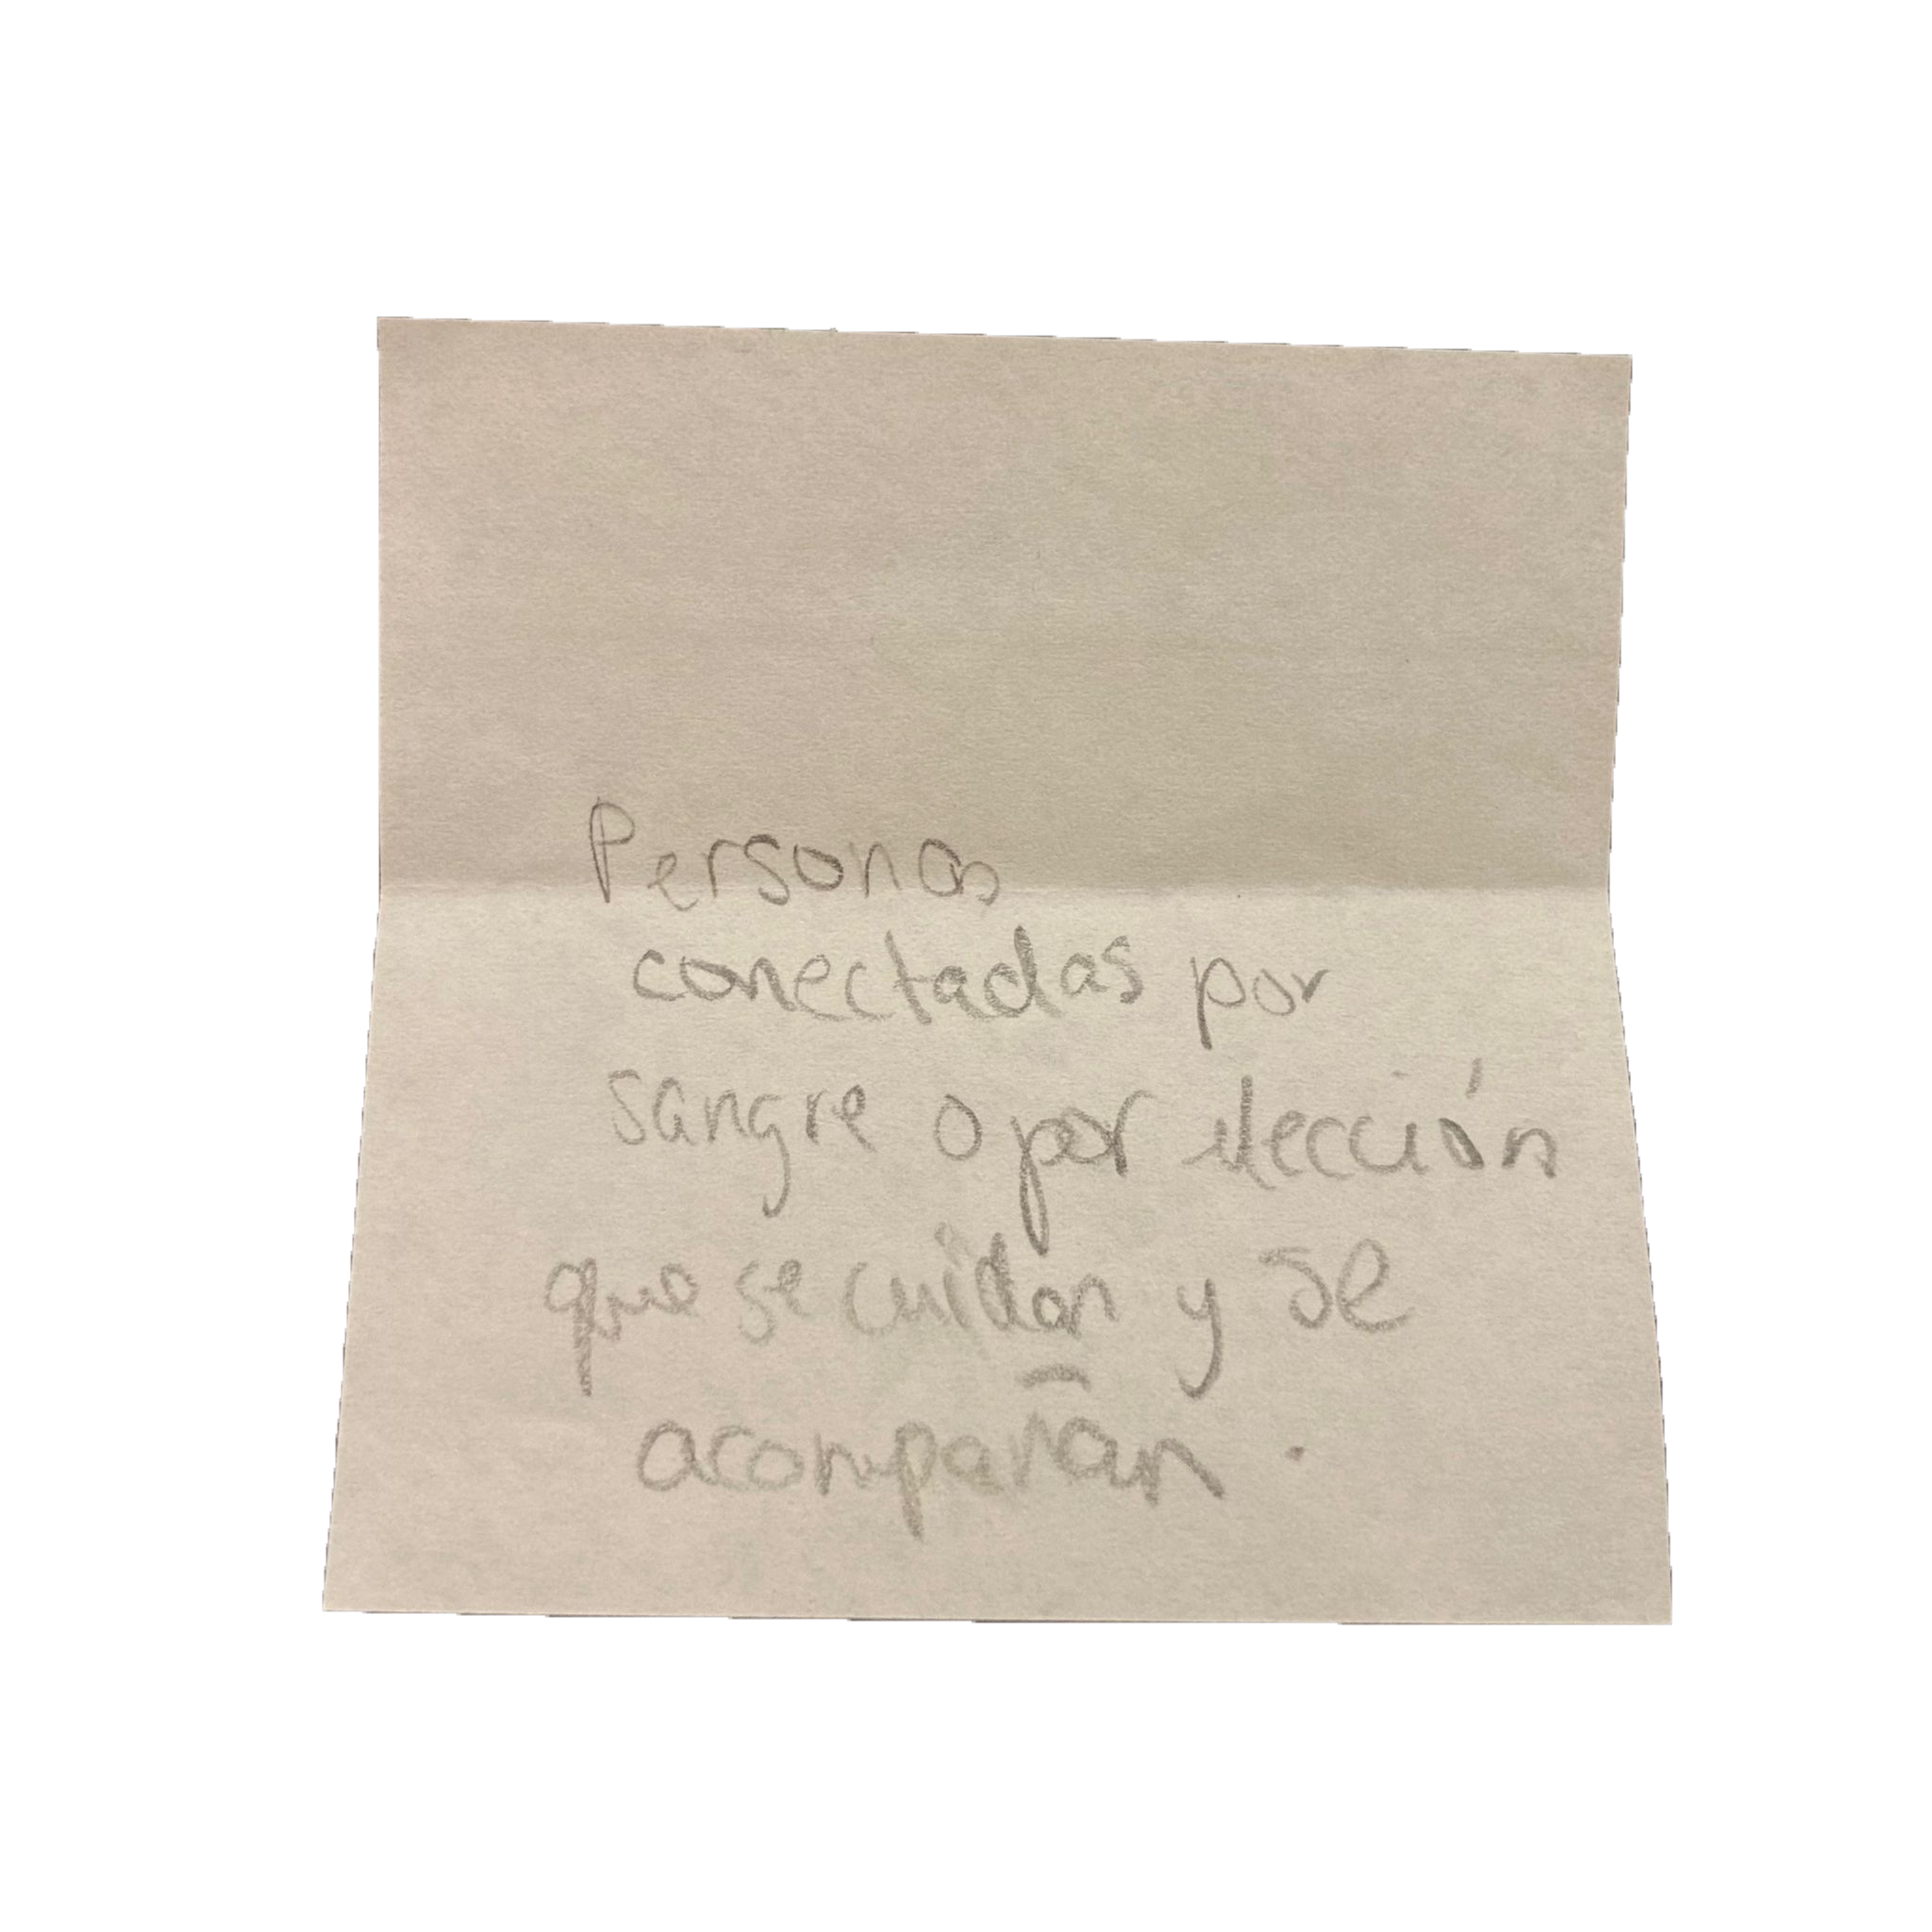 Personas
conectadas por
sangre o por elección
que se cuidan y se
acompañan.